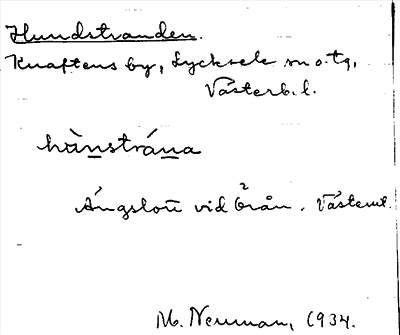 Hundstranden.
Knaftens by, Lycksele sn o. tg,
Västerb. l.
hùnstrána
Ängslott vid Örån. Västerut.
M. Neuman, 1934.